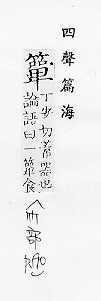 四聲篇海
簞
丁切器也
論語曰一簞食
竹部